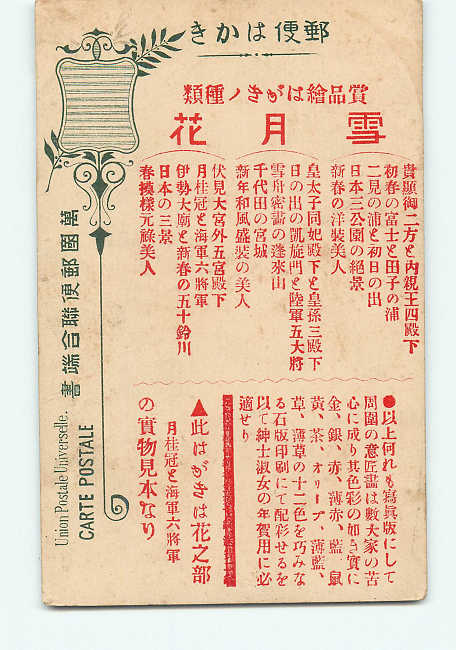 郵便はかき
賞品繪はがきノ種類
雪月花
貴顯御二方と內親王四殿下
初春の富士と田子の浦
二見の浦と初日の出
日本三公園の絶景
新春の洋裝美人
皇太子同妃殿下と皇孫三殿下
日の出の凱旋門と陸軍五大將
雪舟密畫の蓬來山
千代田の宮城
新年和風盛裝の美人
伏見大宮外五宮殿下
月桂冠と海軍六將軍
伊勢大廟と新春の五十鈴川
日本の三景
春摸樣元祿美人
●以上何れも寫眞版にして
周圍の意匠畫は數大家の苦
心に成り其色彩の如き實に
金、銀、赤、薄赤、藍、鼠
黃、茶、オリーブ、薄藍、
草、薄草の十二色を巧みな
る石版印刷にて配彩せるを
以て紳士淑女の年賀用に必
適せり
▲此はがきは花之部
月桂冠と海軍六將軍
の實物見本なり
萬國郵便聯合端書
Union Postale Universelle.
CARTE POSTALE